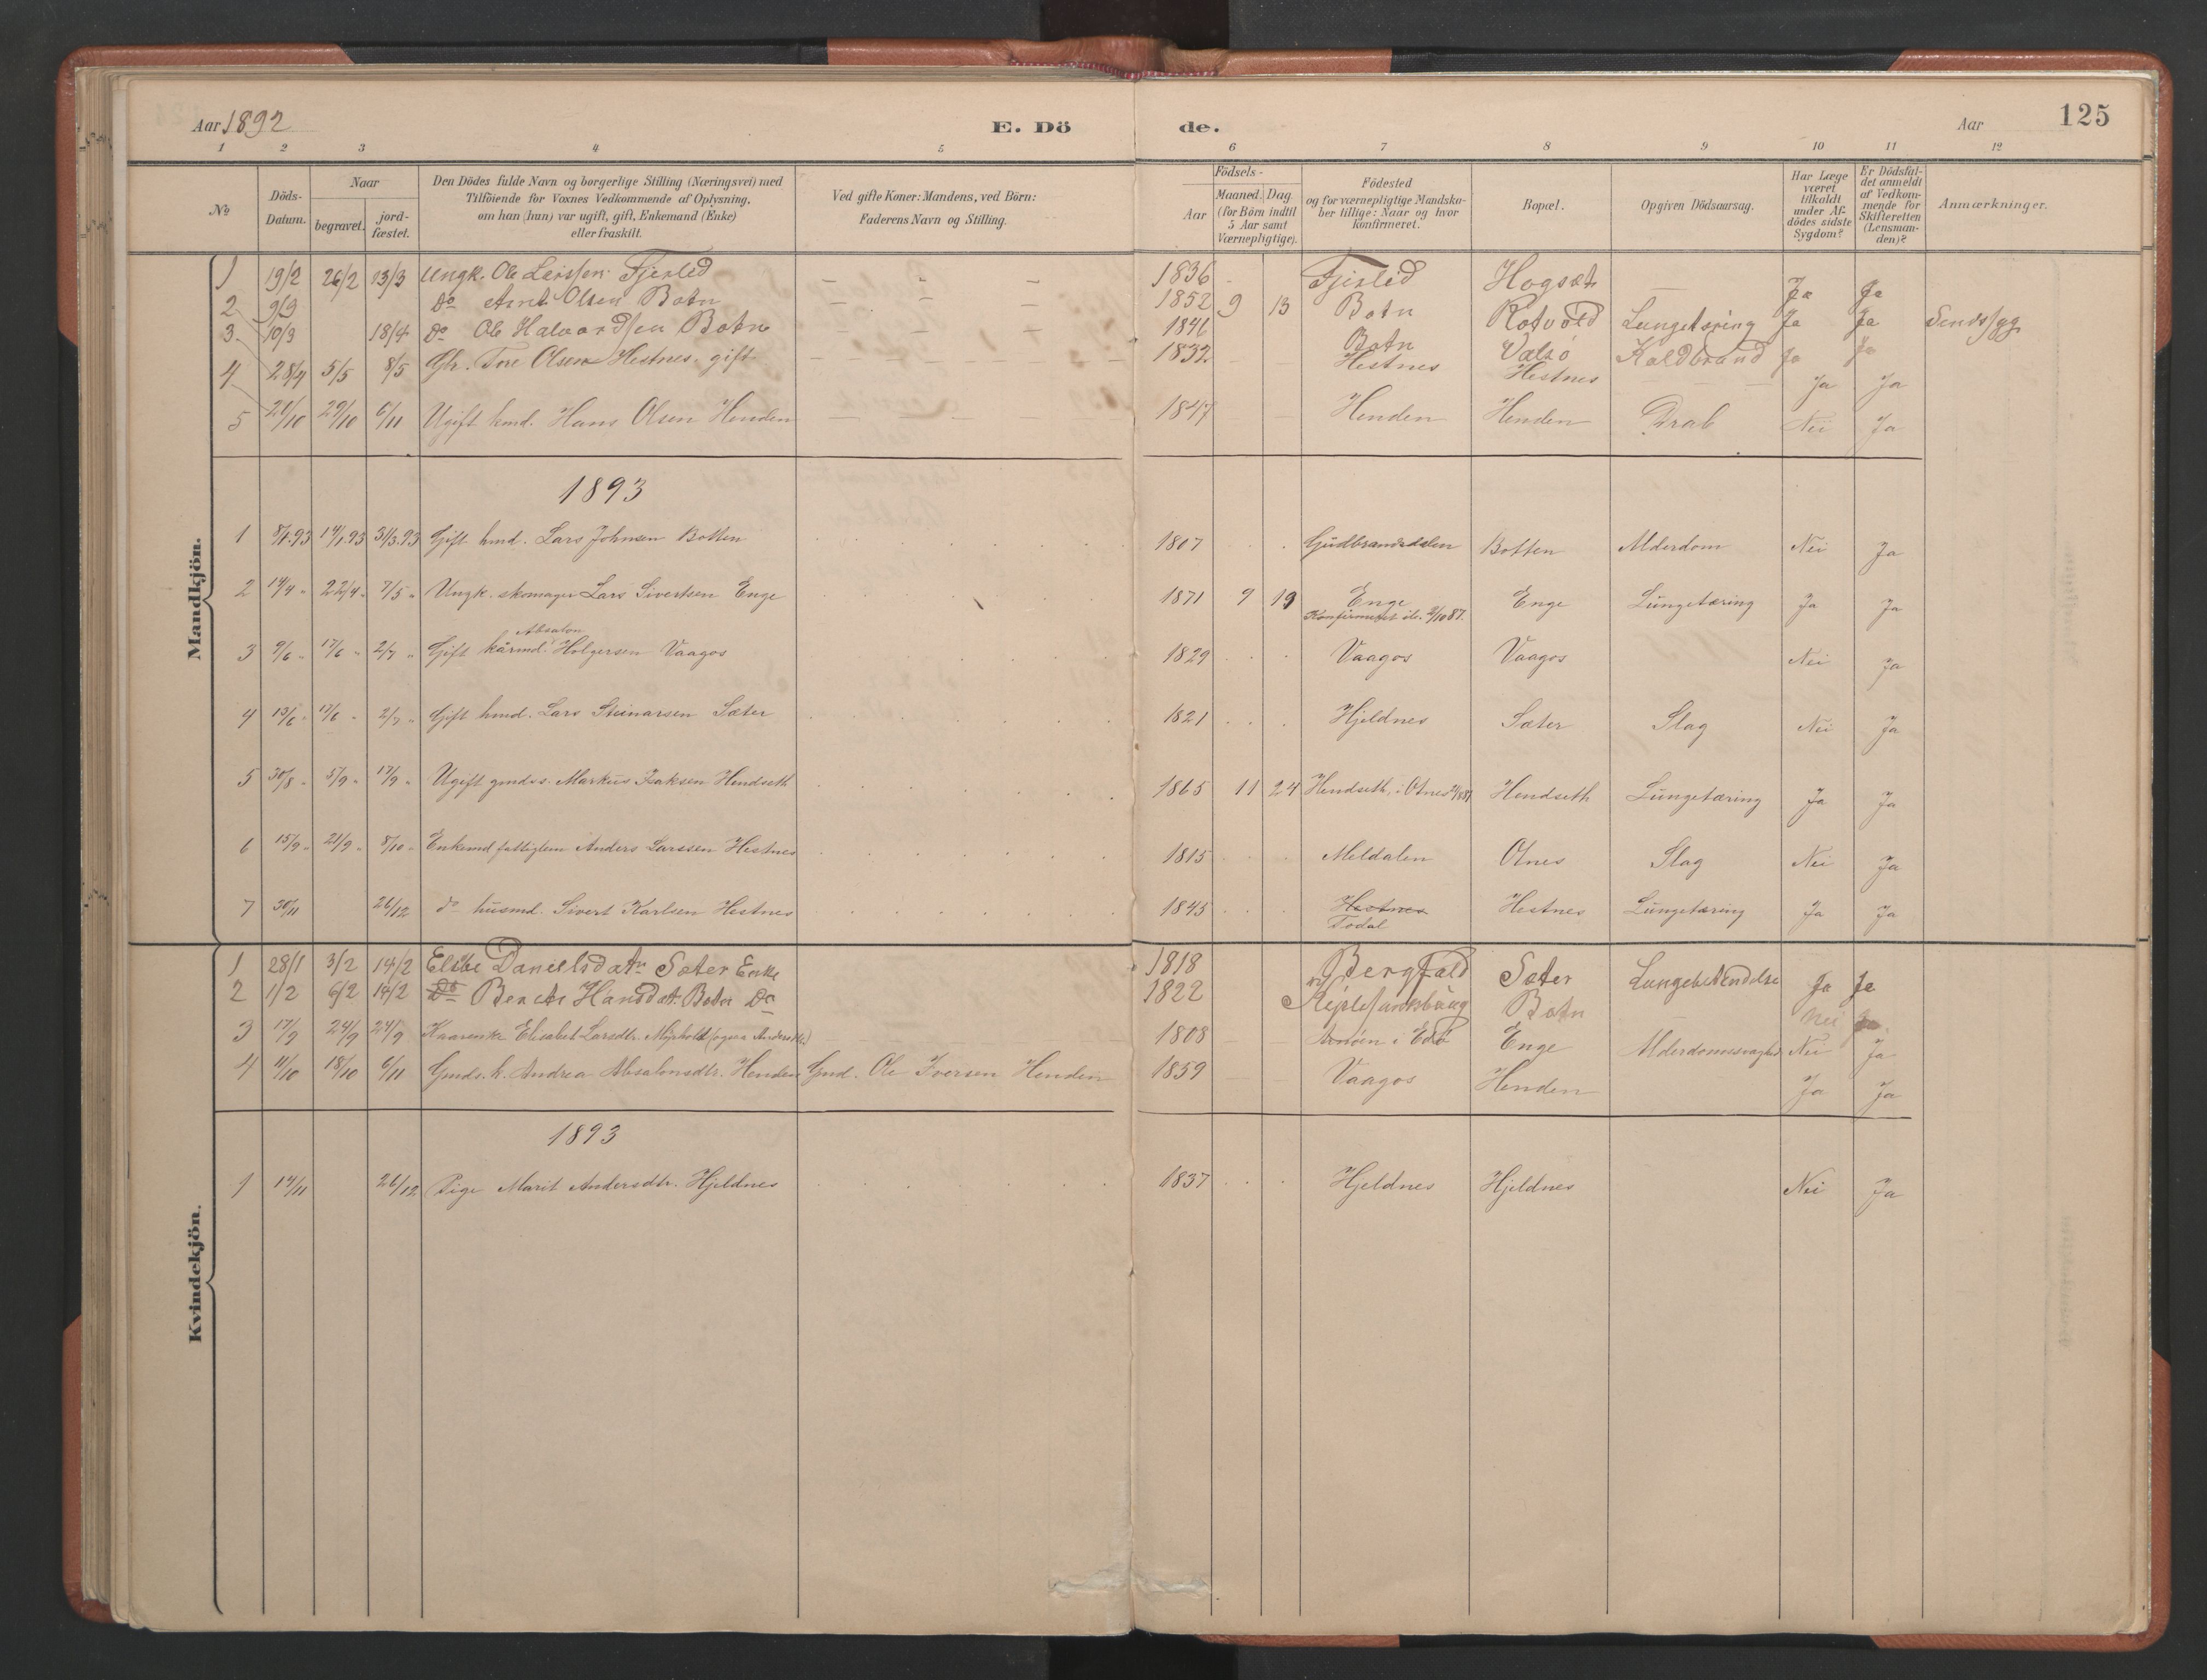 Aar 1892 E. Dö de. Aar 125
1 2 3 4 5 6 7 8 9 10 11 12
No
Döds-Datum.
Naar
begravet.
jord-fæstet.
Den Dödes fulde Navn og borgerlige Stilling (Næringsvei) med
Tilföiende for Voxnes Vedkommende af Oplysning,
om han (hun) var ugift, gift, Enkemand (Enke)
eller fraskilt.
Ved gifte Koner: Mandens, ved Börn:
Faderens Navn og Stilling.
Födsels-
Aar
Maaned. Dag.
(for Börn indtil
5 Aar samt
Værnepligtige).
Födested
og for værnepligtige Mandska-
ber tillige: Naar og hvor
konfirmeret.
Bopæl.
Opgiven Dödsaarsag.
Har Læge
været
tilkaldt
under Af-
dödes sidste
Sygdom?
Er Dödsfal-
det anmeldt
af Vedkom-
mende for
Skifteretten
(Lensman-
den)?
Anmærkninger.
Mandkjön.
1 19/2 26/2 13/3 Ungk. Ole Larssen Fjerlid 1836 Fjerlid Hogset Ja Ja
2 9/3 Do Arnt Olsen Botn 1852 9 13 Botn Rotvold Lungetæring Ja Ja
3 10/3 18/4 Do Ole Halvordsen Botn 1846 Botn Valsø Koldbrand Ja Ja
4 28/4 5/5 8/5 Gbr. Tore Olsen Hestnes gift 1832 Hestnes Hestnes Ja Ja
5 20/10 29/10 6/11 Ugift kmd. Hans Olsen Henden 1847 Henden Henden Drab Nei Ja
1893
1 8/1.93 14/1.93 31/3.93 Gift hmd. Lars Johnsen Botten 1807 Gudbrandsdalen Botten Alderdom Nei Ja
2 14/4 22/4 7/5 Ungk. skomager Lars Sivertsen Enge 1871 9 19 Enge Enge Lungetæring Ja Ja
Absalon
3 9/6 17/6 2/7 Gift kårmd. Holgersen Vaagos 1829 Vaagos Vaagos Nei Ja
4 13/6 17/6 2/7 Gift hmd. Lars Steinarsen Sæter 1821 Hjeldnes Sæter Slag Nei Ja
5 30/8 5/9 17/9 Ugift gmdss. Markus Isaksen Hendseth 1865 11 24 Hendseth, i Otnes Hendseth Lungetæring Ja Ja
6 15/9 21/9 8/10 Enkemd fattiglem Anders Larssen Hestnes 1815 Meldalen Otnes Slag Nei Ja
7 30/11 26/12 do husmd. Sivert Karlsen Hestnes 1845 Hestnes Hestnes Lungetæring Ja Ja
Todal
Kvindekjön.
1 28/1 3/2 14/2 Danielsdatr Sæter Enke 1818 Bergfald Sæter Lungebetændelse Ja Ja
2 1/2 6/2 14/2 Do Hansdat. Botn Do 1822 Botn Nei Ja
3 17/9 24/9 24/9 Elisabet Larsdtr. 1808 i Edø Enge Nei Ja
4 11/10 18/10 6/11 Gmds. k. Andrea Absalonsdtr. Henden Gmd. Ole Iversen Henden 1859 Vaagos Henden Ja Ja
1893
1 14/11 26/12 Pige Marit Andersdtr. Hjeldnes 1837 Hjeldnes Hjeldnes Nei Ja